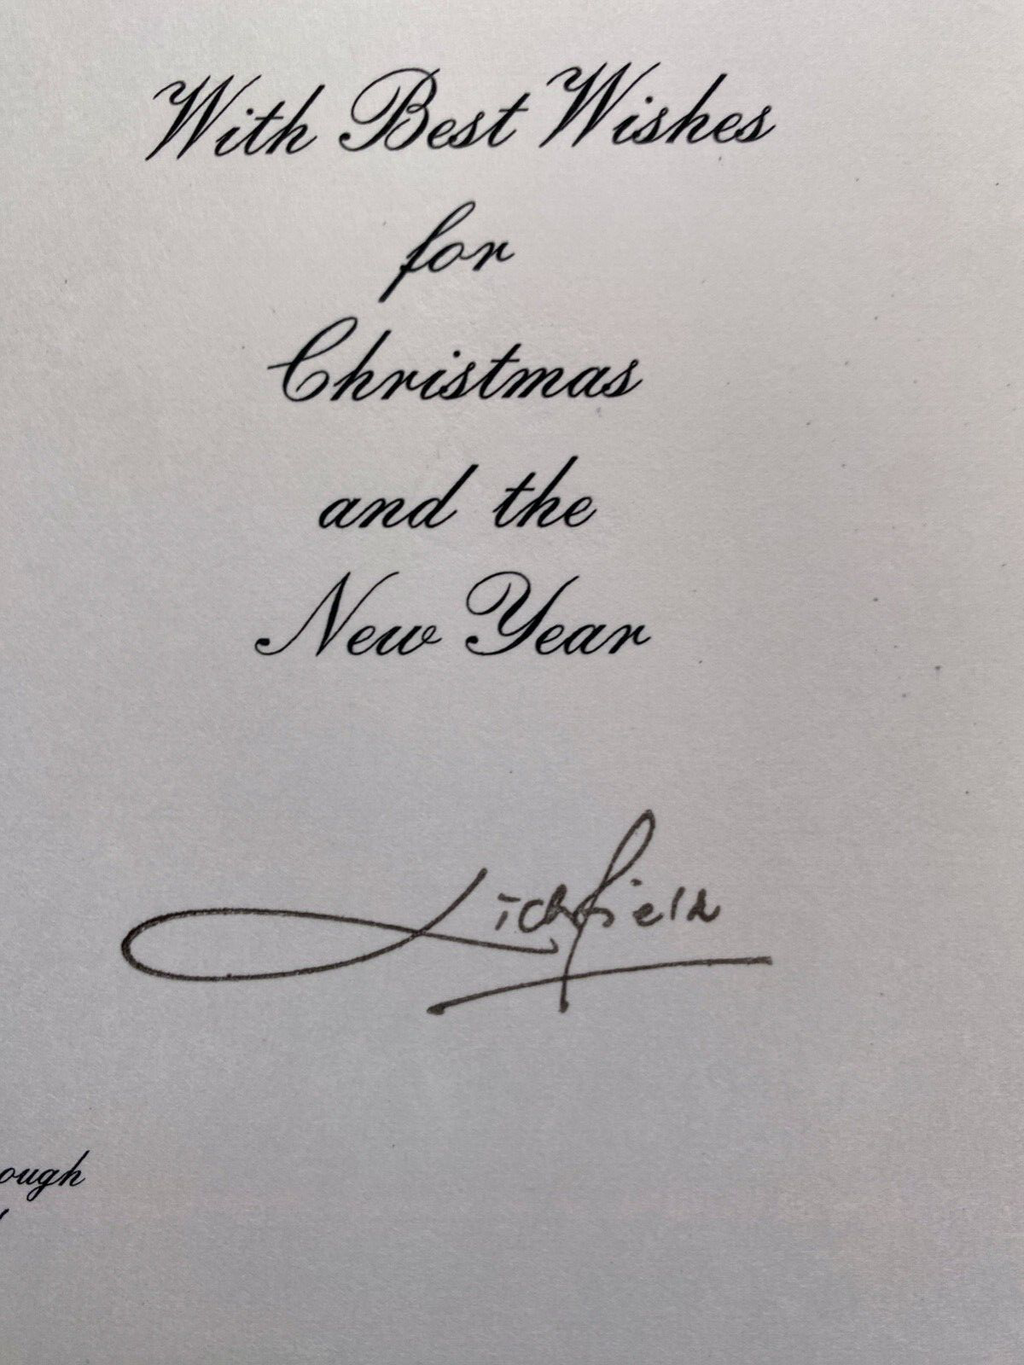 With Best Wishes
for
Christmas
and the
New Year
Lichfield
ough